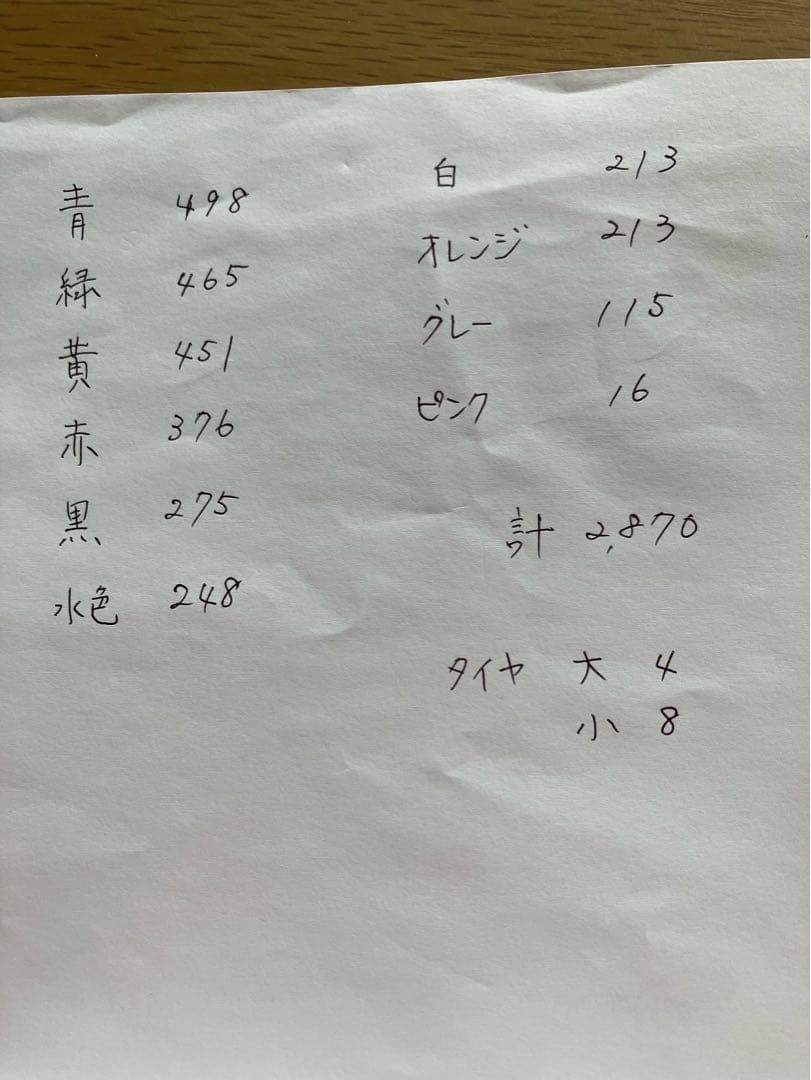 青 498
緑 465
黄 451
赤 376
黒 275
水色 248
白 213
オレンジ 213
グレー 115
ピンク 16
計 2,870
タイヤ 大 4
小 8